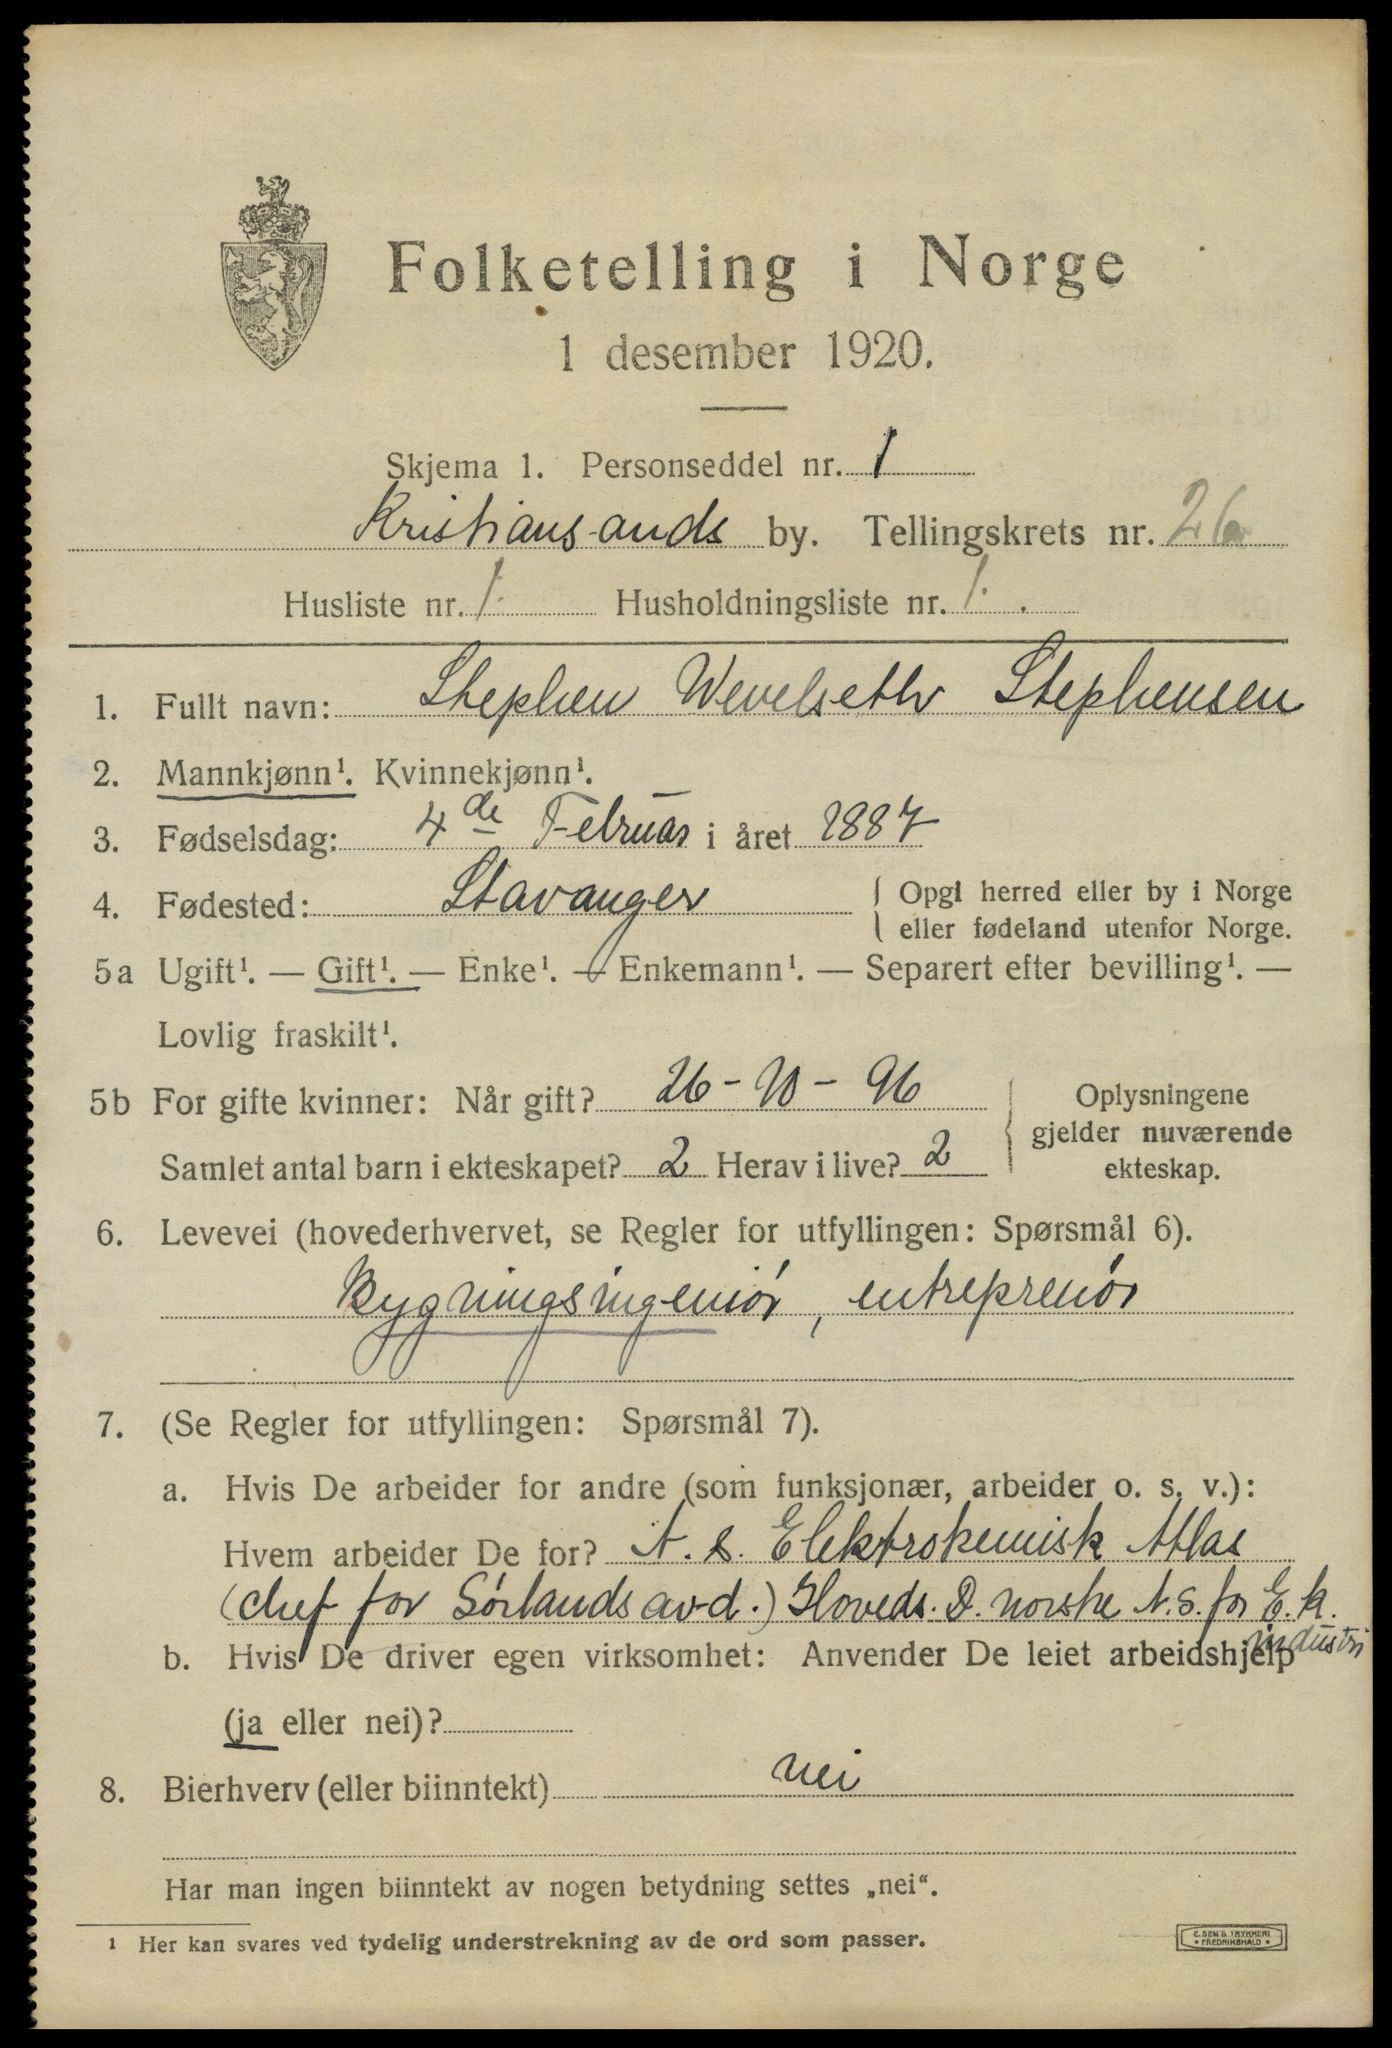 Folketelling i Norge
1 desember 1920.
Skjema 1. Personseddel nr. 1
Kristiansands by. Tellingskrets nr. 26
Husliste nr. 1. Husholdningsliste nr. 1.
1. Fullt navn: Stephen Wevelseth Stephensen
2. Mannkjønn¹. Kvinnekjønn¹.
3. Fødselsdag: 4de Februar i året 1887
4. Fødested: Stavanger { Opgi herred eller by i Norge
eller fødeland utenfor Norge.
5a Ugift¹. — Gift¹. — Enke¹. — Enkemann¹. — Separert efter bevilling¹. —
Lovlig fraskilt¹.
5b For gifte kvinner: Når gift? 26-10-96
Samlet antal barn i ekteskapet? 2 Herav i live? 2
Oplysningene
gjelder nuværende
ekteskap.
6. Levevei (hovederhvervet, se Regler for utfyllingen: Spørsmål 6).
Bygningsingeniør, entreprenør
7. (Se Regler for utfyllingen: Spørsmål 7).
a. Hvis De arbeider for andre (som funksjonær, arbeider o. s. v.):
Hvem arbeider De for? A. S. Elektrokemisk Atlas
(chef for Sørlands avd.) Hoveds. D. norske A. S. for E. k.
industri
b. Hvis De driver egen virksomhet: Anvender De leiet arbeidshjelp
(ja eller nei)?
8. Bierhverv (eller biinntekt) nei
Har man ingen biinntekt av nogen betydning settes „nei“.
¹ Her kan svares ved tydelig understrekning av de ord som passer.
E. SEM'S TRYKKERI
• FREDRIKSHALD •